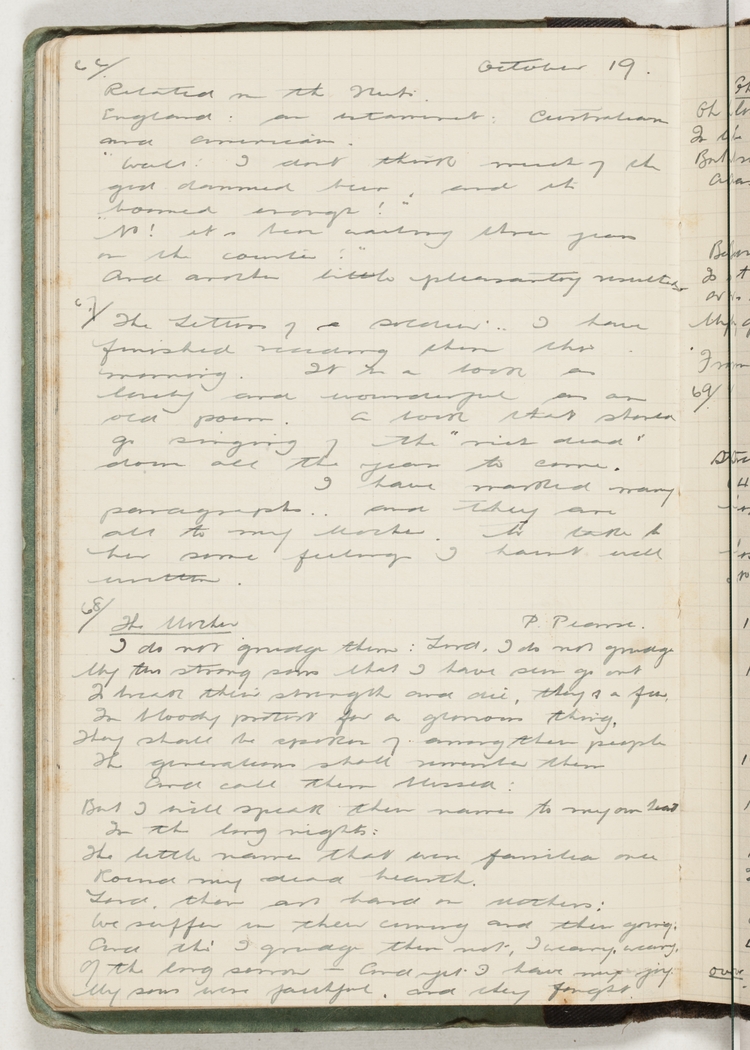 October 19.
Related in the
England: an estaminet: Australian
and American.
"Well! I don't think much of the
god dammed beer, and it's
boomed enough!"
"No! it's been waiting three years
on the counter!"
And another little pleasantry resulted
67/ The Letters of a soldier... I have
finished reading them this
morning. It is a book as
lovely and wounderful as an
old poem. A book that should
go singing of the "rich dead"
down all the years to come.
I have marked many
paragraphs.. and they are
all to my Mother. To take to
her some feelings I hav'nt well
written.
68/ The Mother P. Pearse.
I do not grudge them: Lord, I do not grudge
My two strong sons that I have seen go out
To break their strength and die, they & a few,
In bloody protest for a glorious thing,
They shall be spoken of among their people
The generations shall remember them
And call them blessed:
But I will speak their names to my own heart
In the long nights:
The little names that were familiar once
Round my dead hearth.
Lord, thou art hard on mothers:
We suffer in their coming and their going;
And tho' I grudge them not, I weary, weary
Of the long sorrow – And yet I have my joy
My sons were faithful, and they fought.
69/